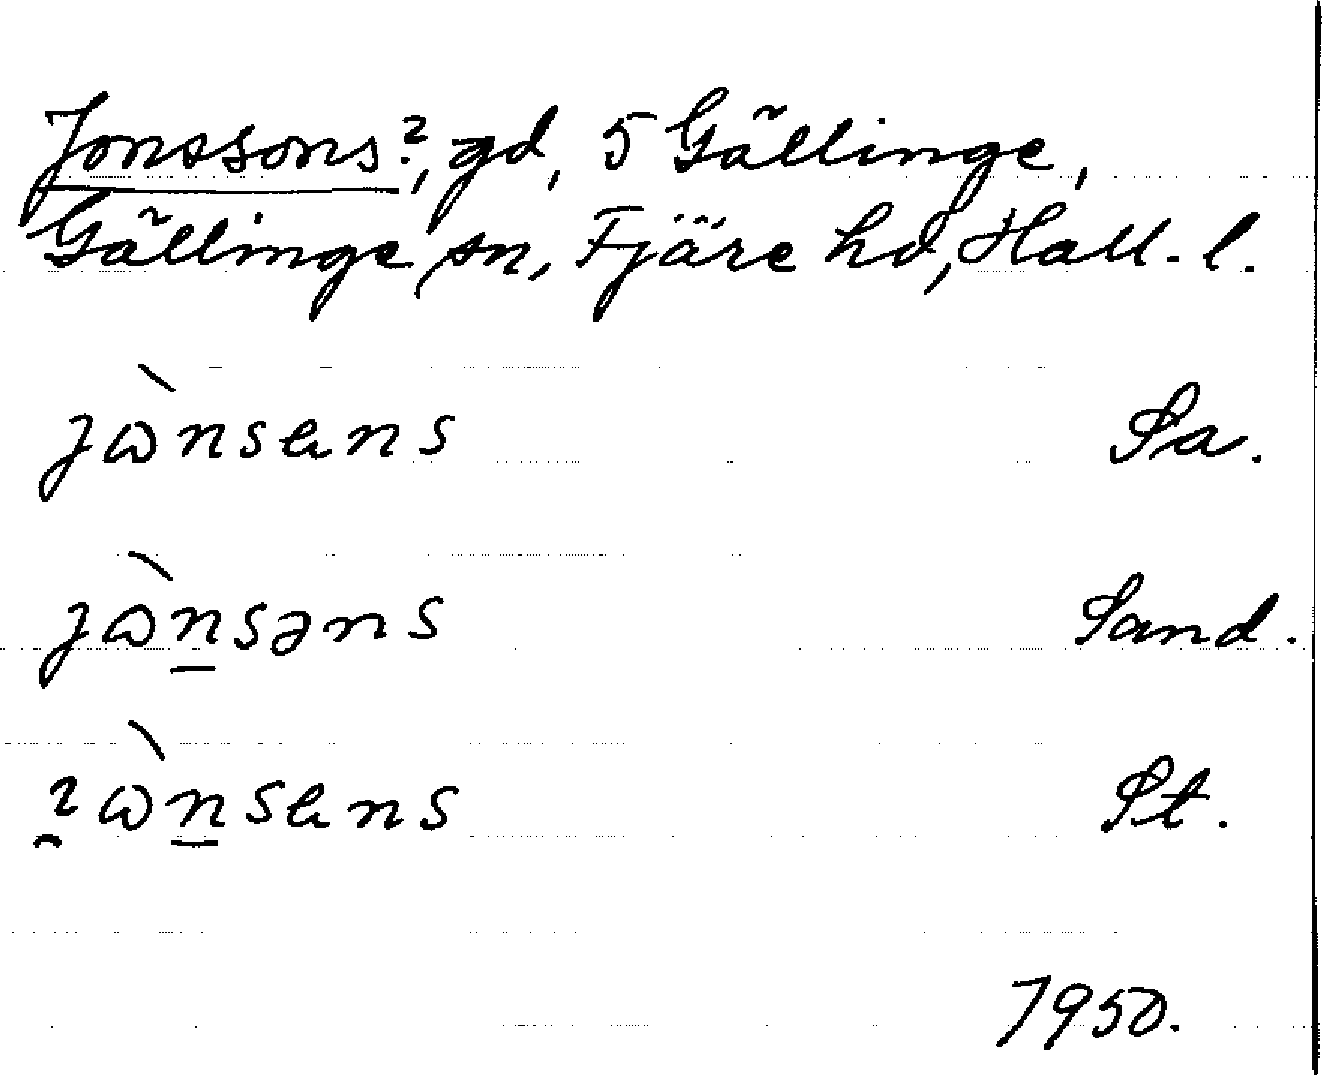 Jonssons?, gd, 5 Gällinge,
Gällinge sn, Fjäre hd, Hall. l.
jὼnsɐns Sa.
jὼn̲səns Sand.
ɿ̯ὼn̲sɐns St.
1950.